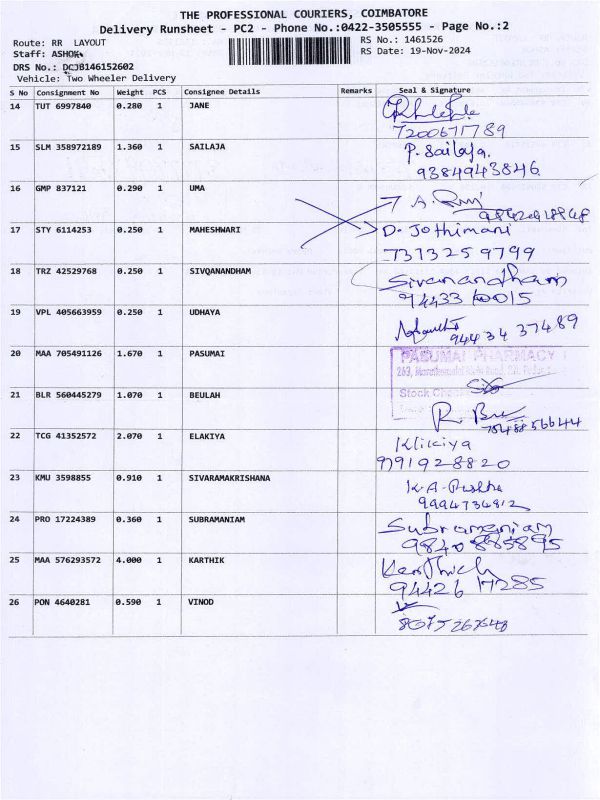 THE PROFESSIONAL COURIERS, COIMBATORE
Delivery Runsheet - PC2 - Phone No.:0422-3505555 - Page No.:2
Route: RR LAYOUT
RS No.: 1461526
Staff: ASHOK
RS Date: 19-Nov-2024
DRS No.: DCJB146152602
Vehicle: Two Wheeler Delivery
S No Consignment No Weight PCS Consignee Details Remarks Seal & Signature
14 TUT 6997840 0.280 1 JANE
7200671789
15 SLM 358972189 1.360 1 SAILAJA P. Sailaja.
9384943846
16 GMP 837121 0.290 1 UMA A.
17 STY 6114253 0.250 1 MAHESHWARI D. Jothimani
7373259799
18 TRZ 42529768 0.250 1 SIVQANANDHAM Sivanandham
19 VPL 405663959 0.250 1 UDHAYA
94434 37489
20 MAA 705491126 1.670 1 PASUMAI PASUMAI PHARMACY
263,
21 BLR 560445279 1.070 1 BEULAH Stock
R.
22 TCG 41352572 2.070 1 ELAKIYA Klikiya
9791928820
23 KMU 3598855 0.910 1 SIVARAMAKRISHANA K.A.
9994734912
24 PRO 17224389 0.360 1 SUBRAMANIAM Subramaniam
98408 85895
25 MAA 576293572 4.000 1 KARTHIK Karthick
94426 17285
26 PON 4640281 0.590 1 VINOD